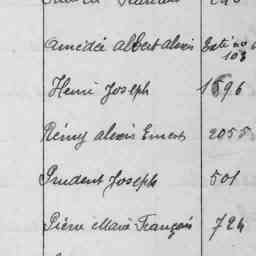 Amédée Albert Alexis Exti no 103
Henri Joseph 1596
Rémy Alexis Ernest 2055
Prudent Joseph 501
Pierre Marie François 724